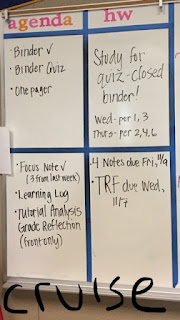 agenda hw
• Binder ✓
• Binder Quiz
• One pager
Study for
quiz - closed
binder!
Wed - per 1, 3
Thurs - per 2, 4, 6
• Focus Note ✓
(3 from last week)
• Learning Log
• Tutorial Analysis
Grade Reflection
(front only)
• 4 Notes due Fri, 11/9
• TRF due Wed,
11/7
cruise